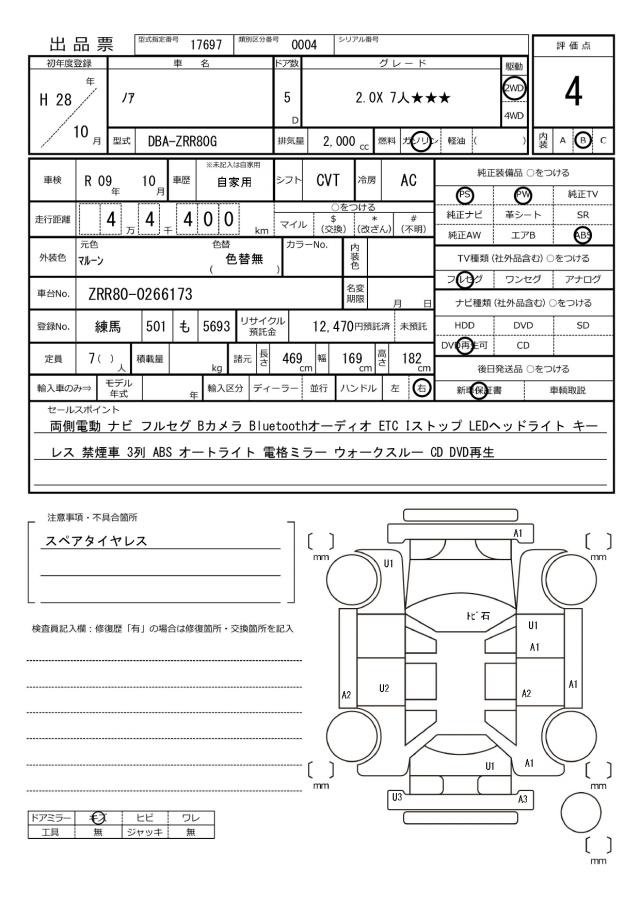 出品票 型式指定番号 17697 類別区分番号 0004 シリアル番号
評価点
4
内装 A B C
初年度登録 車名 ドア数 グレード 駆動
H 28 年 ノア 5 D 2.0X 7人★★★ 2WD
10 月 4WD
型式 DBA-ZRR80G 排気量 2,000 cc 燃料 ガソリン 軽油 ( )
車検 R 09 年 10 月 車歴 ※未記入は自家用 自家用 シフト CVT 冷房 AC
走行距離 4 万 4 千 4 0 0 km
○をつける
マイル $ (交換) * (改ざん) # (不明)
外装色 元色 マルーン 色替 ( 色替無 ) カラーNo. 内装色
車台No. ZRR80-0266173 名変期限 月 日
登録No. 練馬 501 も 5693 リサイクル預託金 12,470円預託済 未預託
定員 7( ) 人 積載量 kg 諸元 長さ 469 cm 幅 169 cm 高さ 182 cm
輸入車のみ⇒ モデル年式 年 輸入区分 ディーラー 並行 ハンドル 左 右
純正装備品 ○をつける
PS PW 純正TV
純正ナビ 革シート SR
純正AW エアB ABS
TV種類 (社外品含む) ○をつける
フルセグ ワンセグ アナログ
ナビ種類 (社外品含む) ○をつける
HDD DVD SD
DVD再生可 CD
後日発送品 ○をつける
新車保証書 車輌取説
セールスポイント
両側電動 ナビ フルセグ Bカメラ Bluetoothオーディオ ETC Iストップ LEDヘッドライト キー
レス 禁煙車 3列 ABS オートライト 電格ミラー ウォークスルー CD DVD再生
注意事項・不具合箇所
スペアタイヤレス
検査員記入欄：修復歴「有」の場合は修復箇所・交換箇所を記入
ドアミラー キズ ヒビ ワレ
工具 無 ジャッキ 無
A1
mm
mm
U1
トビ石
U1
A1
A2
U2
A2
A1
U1
A1
mm
mm
U3
A3
mm